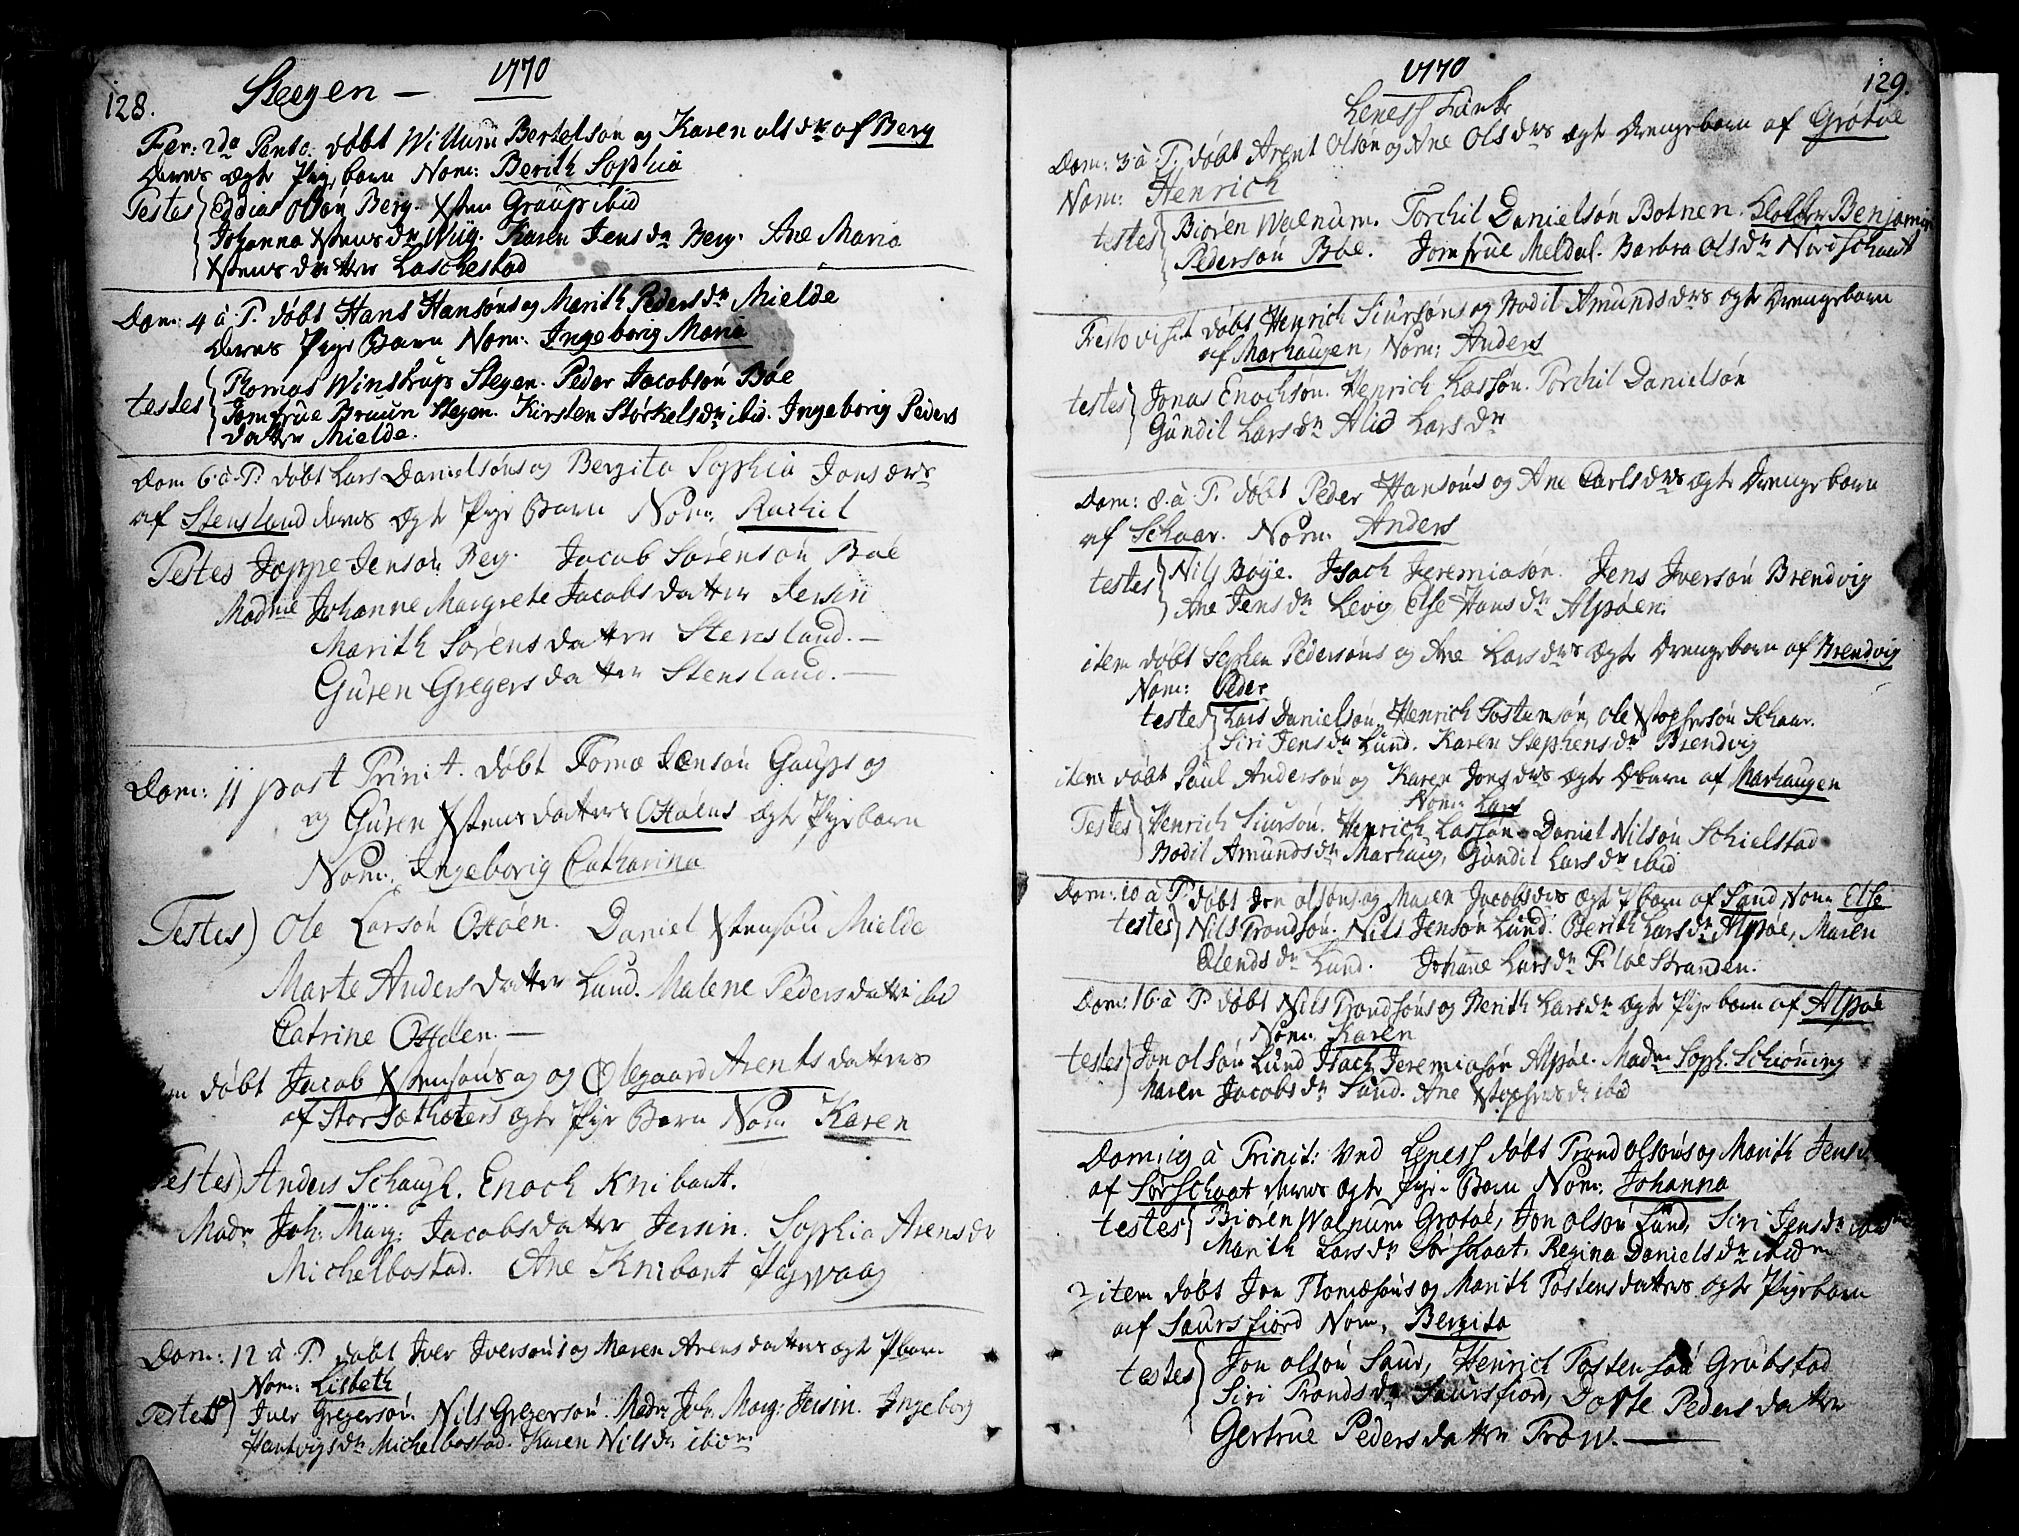 128.
Steegen — 1770
Fer: 2da Pentc: døbt Willum Bertelsøn og Karen olsdr af Berg
Deres ægte Pige barn Nom: Berith Sophia
Testes Edias Olsøn Berg. Xsten Graup ibid
Johanna Xstensdr Wiig. Karen Jensdr Berg. Ane Maria
Xstens datter Laschestad
Dom: 4 à P. døbt Hans Hansøns og Marith Pedersdr Mielde
Deres Pige Barn Nom: Ingeborg Maria
testes Thomas Winstrup Stegen. Peder Jacobsøn Bøe
Jomfrue Bruun Stegen. Kirsten Størkelsdr ibid. Ingeborg Peders
datter Mielde.
Dom 6 à P. døbt Lars Danielsøns og Bergita Sophia Jons drs
af Stensland deres ægte Pige Barn Nom: Rachil
Testes Joppe Jensøn Berg. Jacob Sørensøn Bøe
Madme Johanne Margrete Jacobs datter Jersin
Marith Sørens datter Stensland. —
Guren Gregers datter Stensland. —
Dom: 11 post Trinit. døbt Tomæ Jænsøn Gaups og
og Guren Xstens datters Ottøens ægte Pigebarn
Nom: Ingeborig Catharina
Testes) Ole Larsøn Ottøen. Daniel Xstensøn Mielde
Marte Anders datter Lund. Malene Peders datter ibid
Catrine Ottøen. —
døbt Jacob Xstensøns og og Olegaard Arents datters
af Storsæthaters ægte Pige Barn Nom Karen
Testes) Anders Schaugh. Enoch Knibant.
Madm Joh: Marg: Jacobsdatter Jersin. Sophia Arensdr
Michelbostad. Ane Knibant Hagwaag
Dom: 12 à P. døbt Iver Iversøns og Maren Arens datters ægte Pbarn
Nom: Lisbeth
Testes) Iver Gregersøn. Nils Gregersøn. Madm Joh. Marg: Jersin. Ingeborg
Hentvigsdr Michelbostad. Karen Nilsdr ibidm
1770
129.
Leness
Dom: 3 à P. døbt Arent Olsøn og Ane Olsdrs ægte Drengebarn af Grøtøe
Nom: Henrich
testes Biøren Walnum. Torchil Danielsøn Botnen. Klocker Benjamin
Pedersøn Bøe. Jomfrue Meldal. Barbra Olsdr Nordschaat
Festo visit døbt Henrich Siursøns og Bodil Amunds drs ægte Drengebarn
af Marhaugen, Nom: Anders
testes Jonas Enochsøn. Henrich Lassøn. Torchil Danielsøn
Gundil Larsdr Alid Lars dr
Dom: 8 à P. døbt Peder Hansøns og Ane Carls drs ægte Drenge barn
af Schaar. Nom: Anders
testes Nils Bøye. Isach Jeremiasøn. Jens Iversøn Brendvig
Ane Jens dr Levig Else Hans dr Alpøen.
item døbt Sephen Pedersøns og Ane Larsdrs ægte Drengebarn af Brendvig
Nom: Peder
testes Lars Danielsøn, Henrich Tostensøn, Ole Xstophersøn Schaar.
Siri Jensdr Lund. Karen Stephensdr Brendvig
item døbt Paul Andersøn og Karen Jonsdrs ægte Dbarn af Marhaugen
Nom: Lars
Testes Henrich Siursøn. Henrich Lassøn. Daniel Nilsøn Schielstad
Bodil Amundsdr Marhaug, Gundil Larsdr ibid
Dom: 10 à P. døbt Jon olsøns og Maren Jacobsdrs ægte Pbarn af Sand, Nom Else
testes Nils Trondsøn. Nils Jensøn Lund. Berith Larsdr Alpøe, Maren
Elends dr Lund. Johanne Larsdr Piløe Stranden.
Dom: 16 à P. døbt Nils Trondsøns og Berith Larsdr ægte Pige barn af Alpøe
Nom: Karen
testes Jon olsøn Lund Isach Jeremiasøn Alpøe. Madm Soph. Schiøning
Maren Jacobs dr Sand. Ane Xstophersdr ibid
Dom: 19 à Trinit: Ved Leness døbt Trond olsøns og Marith Jens
af Sørschaat deres ægte Pige Barn Nom: Johanna
testes Biøren Walnum Grøtøe, Jon olsøn Lund, Siri Jensdr
Marith Larsdr Sørschaat, Regina Danielsdr ibidm
item døbt Jon Thomæsøns og Marith Tostens datters ægte Pigebarn
af Saursfiord Nom: Bergita
testes Jon olsøn Saur, Henrich Tostensøn Grøbstad
Siri Tronds dr Saursfiord, Dorte Peders datter
Gertrue Peders datter Trøw. —